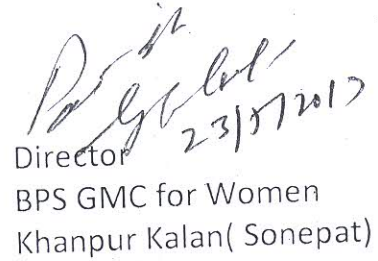 23/5/2017
Director
BPS GMC for Women
Khanpur Kalan( Sonepat)